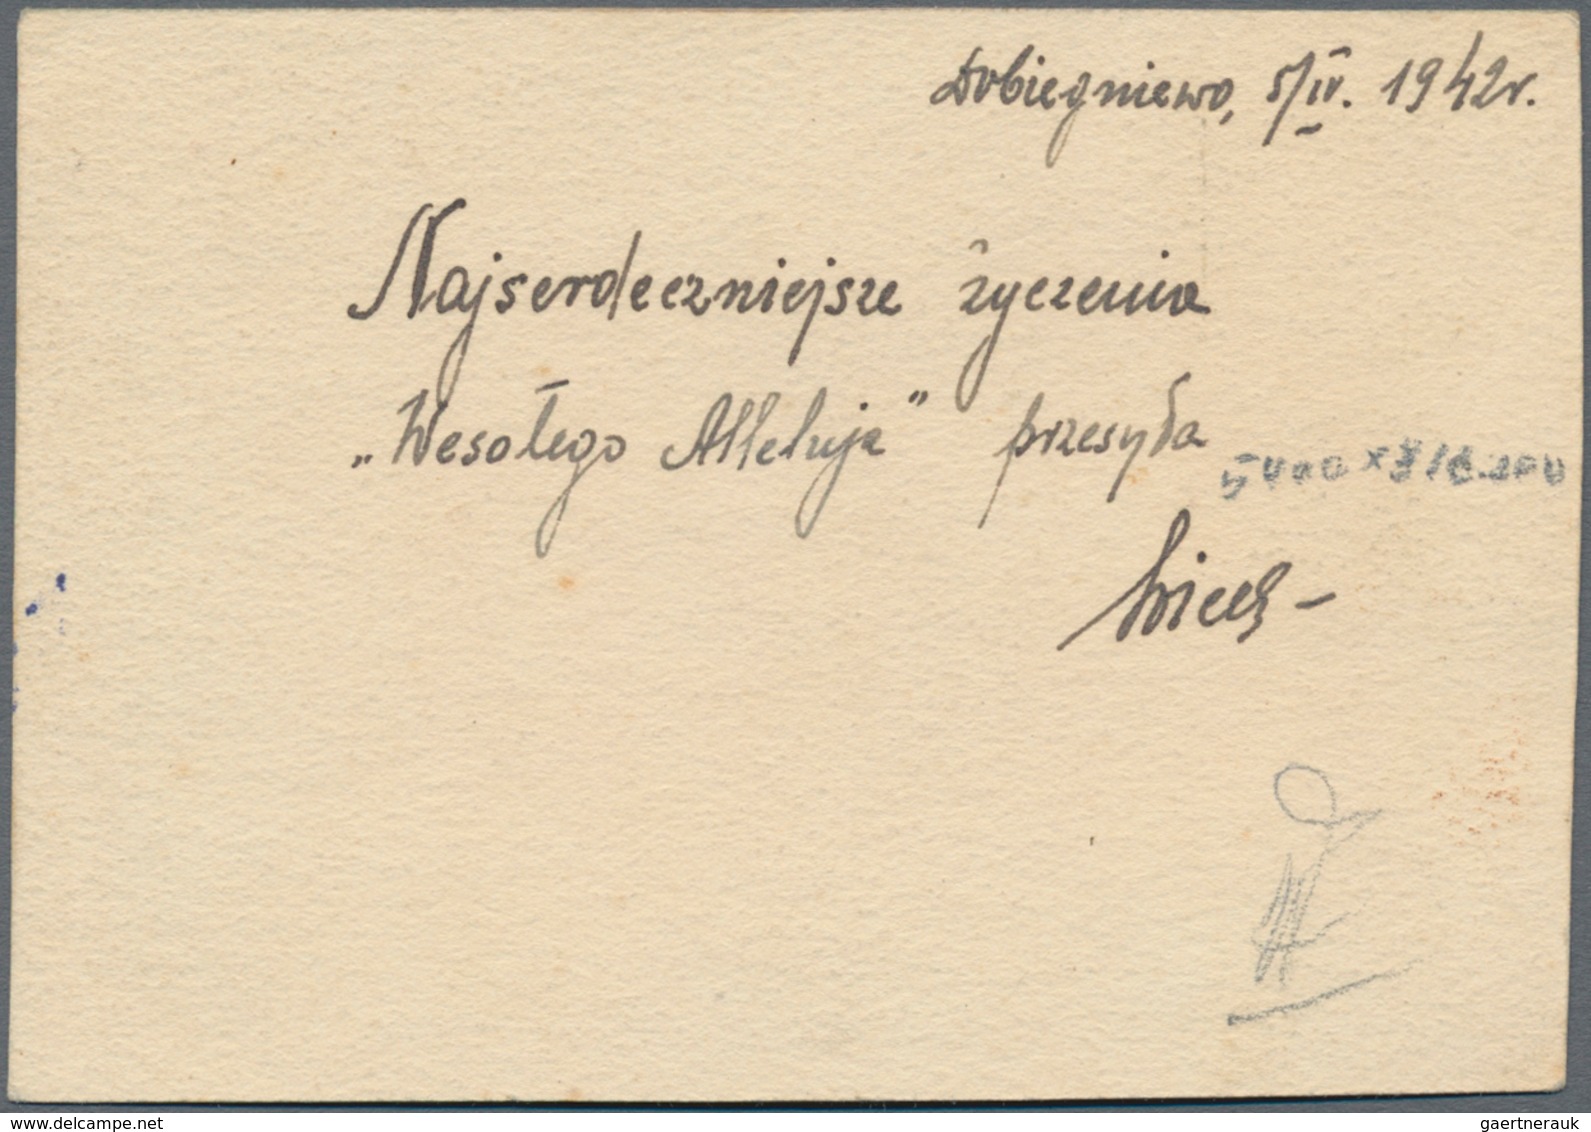 Dobiegniewo, 5/IV. 1942r.
Najserdeczniejsze życzenia
„Wesołego Alleluja" przesyła
www.delcampe.net
gaertnerauk